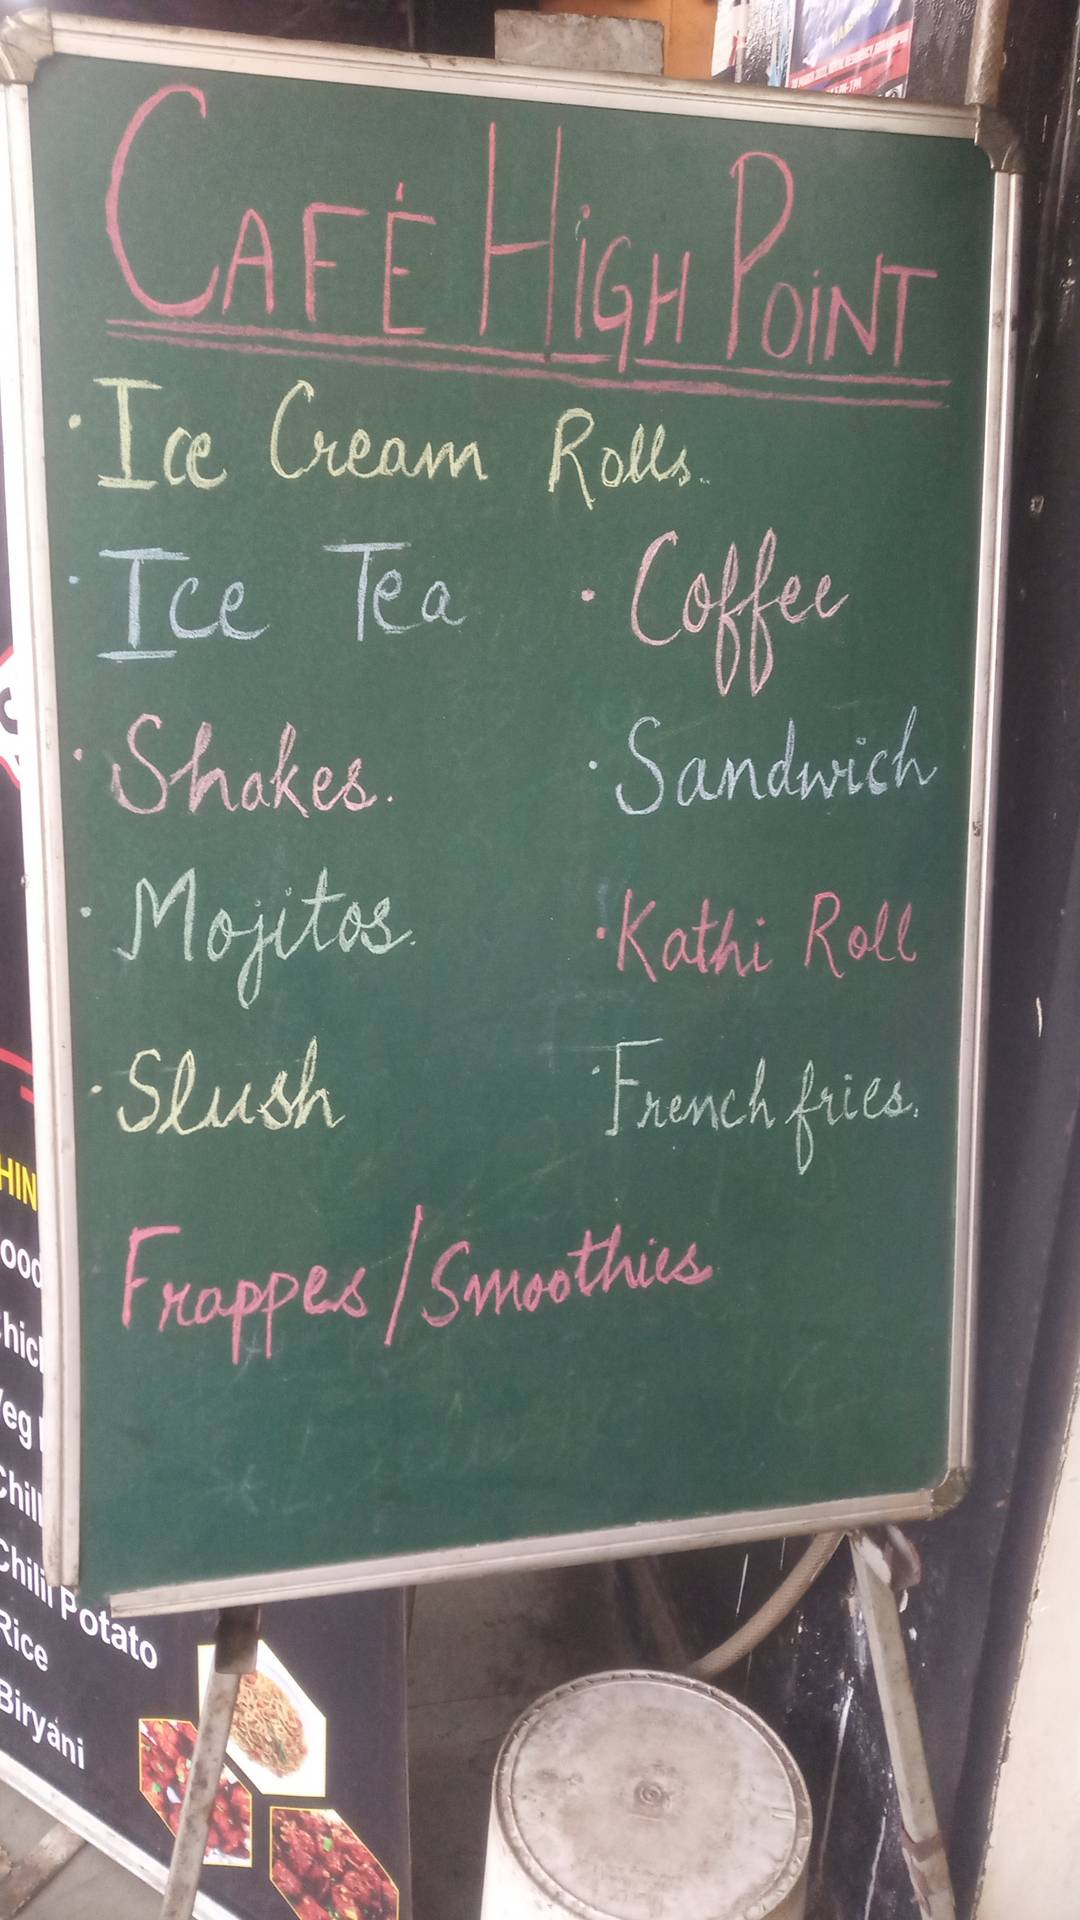 CAFÉ HIGH POINT
· Ice Cream Rolls..
· Ice Tea
· Coffee
· Shakes.
· Sandwich
· Mojitos.
· Kathi Roll
· Slush
· French fries.
Frappes/Smoothies
Potato
Rice
Biryani